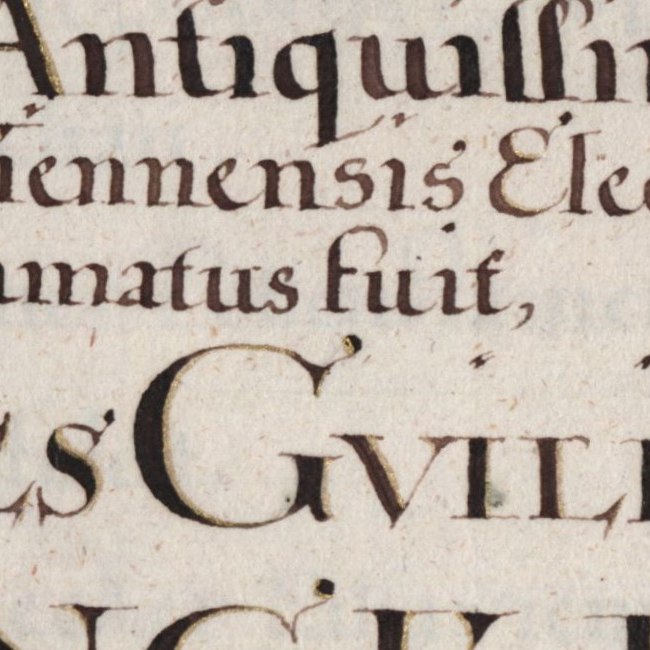 Antiquissim
iennensis Elec
matus fuit,
ES GVILI
NCE